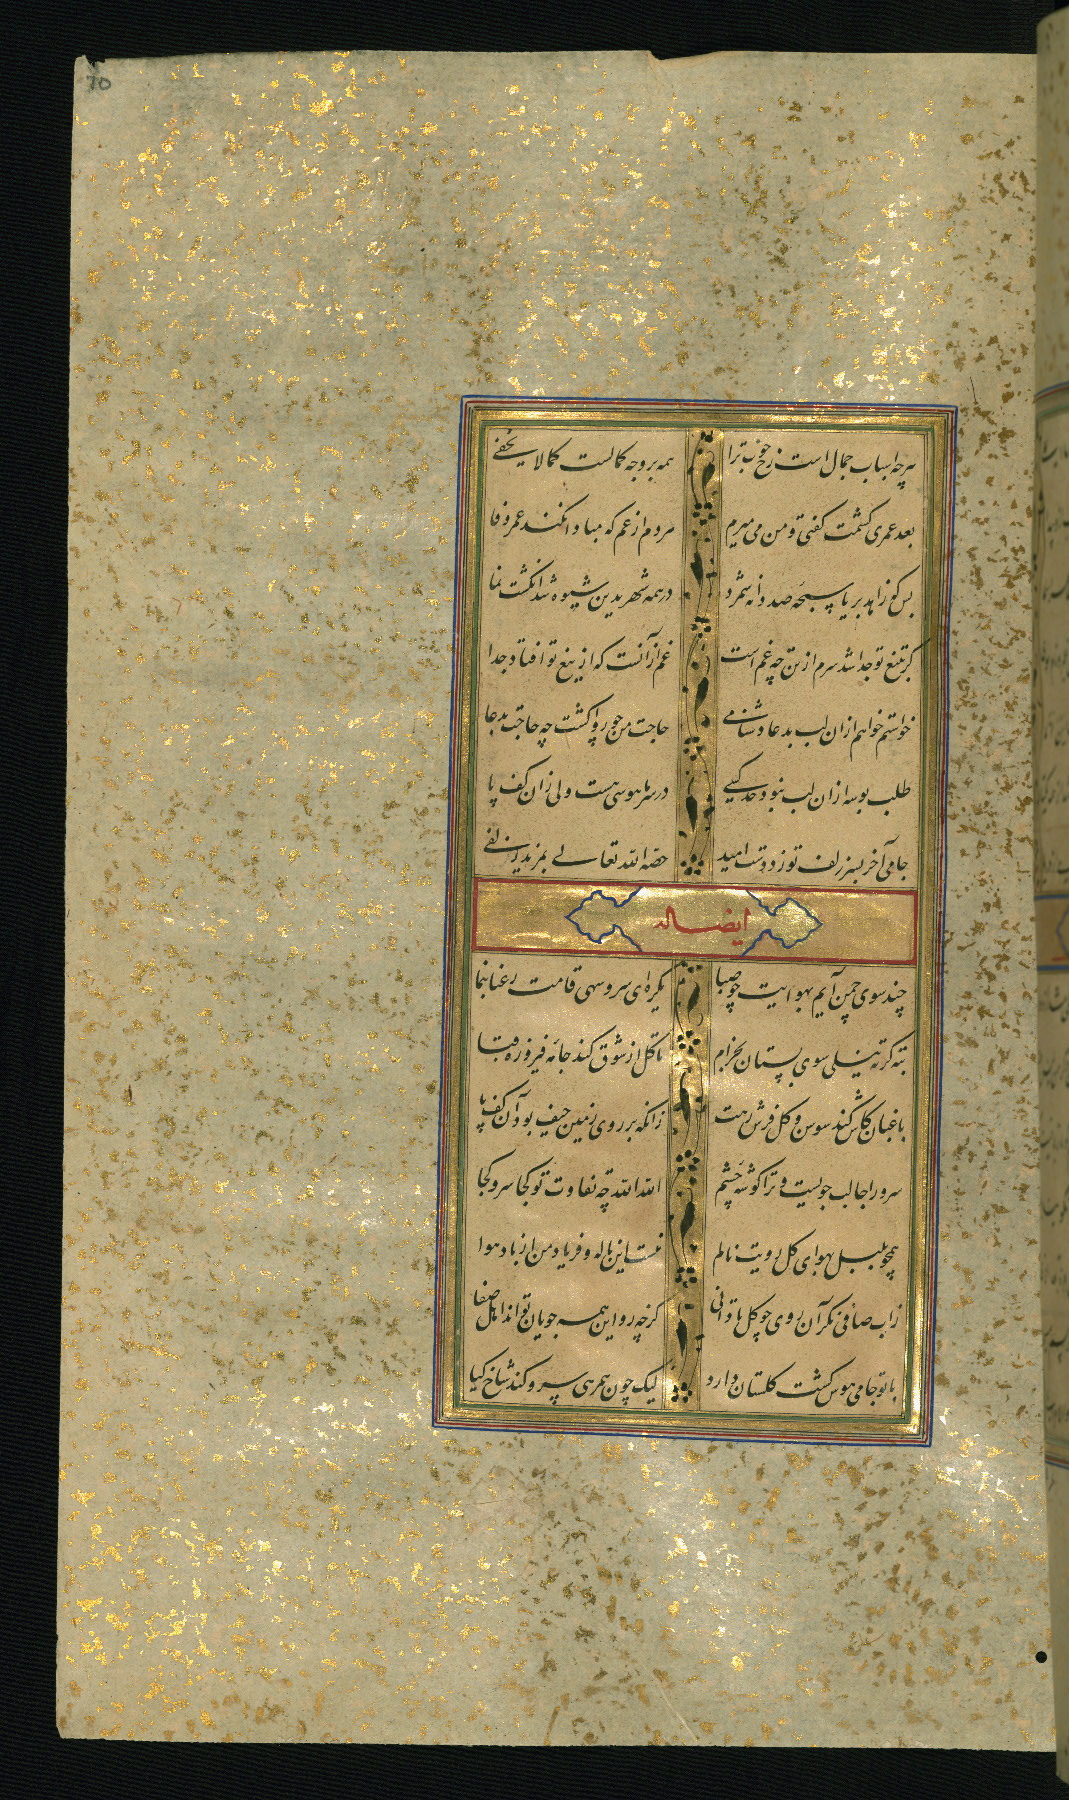 70
هرچه اسباب جمال است رخ خوب ترا همه بر وجه کمالست کمالا یخفی
بعد عمری کشمت گفتی و من می میرم هردم از غم که مبادا نکند عمر وفا
بس که زاهد بریا سبحه صد دانه شمرد در همه شهر بدین شیوه شد انگشت نما
گر بتیغ تو جدا شد سرم از تن چه غم است غم از آنست که از تیغ تو افتاد جدا
خواستم خواهم ازان لب بدعا دشنامی حاجت من چو روا گشت چه حاجت بدعا
طلب بوسه ازان لب نبود حد کسی در سر ما هوسی هست ولی زان کف پا
جامی آخر بسر زلف تو زد دست امید خصه الله تعالی بمزید الزلفی
ایضا له
چند سوی چمن آیم بهوایت چو صبا یکره ای سرو سهی قامت رعنا بنما
ته کرته نیلی سوی بستان بخرام تا گل از شوق کند جامه فیروزه قبا
باغبان کاش کند سوسن و گل فرش رهت زانکه بر روی زمین حیف بود آن کف پا
سرو را جا لب جویست و ترا گوشه چشم الله الله چه تفاوت تو کجا سرو کجا
همچو بلبل بهوای گل رویت نالم نیست این ناله و فریاد من از باد هوا
زاب صافی نگر آن روی چو گل تا دانی کز چه رو این همه جویان تو اند اهل صفا
با تو جامی هوس گشت گلستان دارد لیک چون همرهی سرو کند شاخ گیا